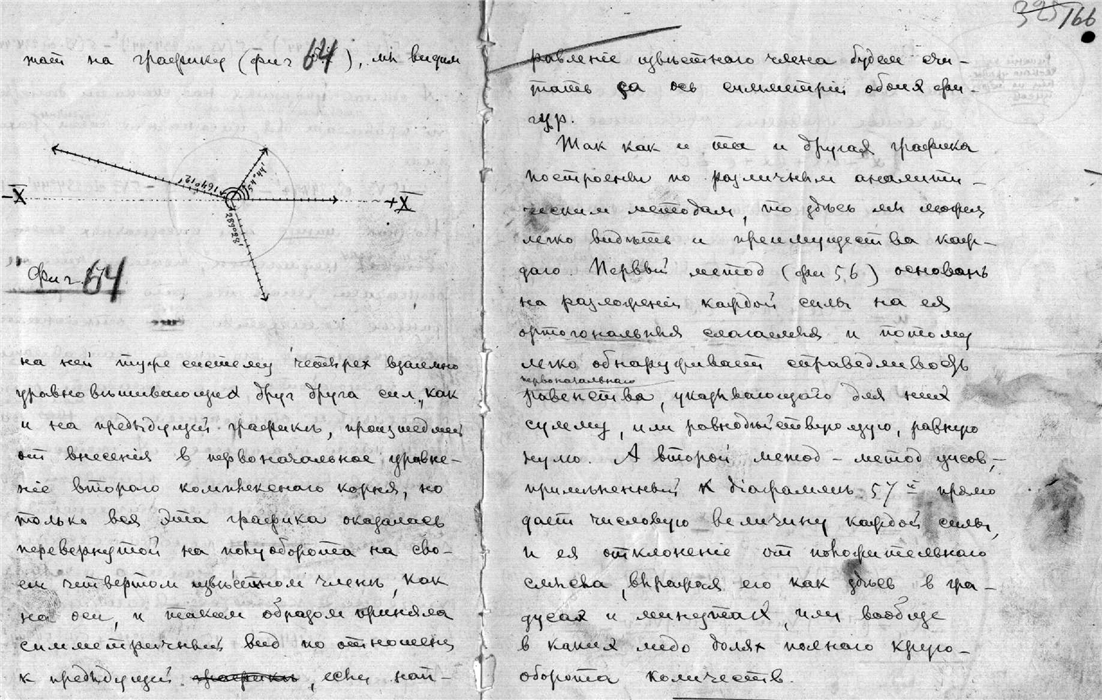 жаст на графику (фиг 64), мы видим
164°12'
44°45'
259°28'
-X
+X
Фиг. 64
на ней туже систему четырех взаимно
уравновѣшивающих друг друга сил, как
и на предыдущей графикѣ, происшедшей
от внесенія в первоначальное уравне-
ніе второго комплекснаго корня, но
только вся эта графика оказалась
перевернутой на полуоборота на сво-
ем четвертом извѣстном членѣ, как
на оси, и таким образом приняла
симметричный вид по отношенію
к предыдущей графикѣ, если нап-
166
равленіе извѣстнаго члена будем счи-
тать за ось симметріи обоих фи-
гур.
Так как и та и другая графика
построены по различным аналити-
ческим методам, то здѣсь мы можем
легко видѣть и преимущества каж-
даго. Первый метод (фи 56) основан
на разложеніи каждой силы на ея
ортогональныя слагаемыя и потому
легко обнаруживает справедливость
первоначальнаго
равенства, указывающаго для них
сумму, или равнодѣйствующую, равную
нулю. А второй метод – метод углов,
примѣненный к діаграммѣ 57й прямо
дает числовую величину каждой силы
и ея отклоненіе от положительнаго
смысла, выражая его как здѣсь в гра-
дусах и минутах, или вообще
в каких либо долях полнаго круго-
оборота количеств.